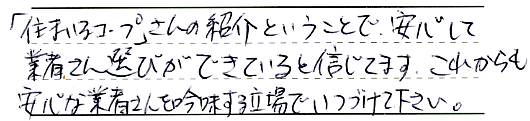 「住まいるコープ」さんの紹介ということで、安心して
業者さん選びができていると信じてます。これからも
安心な業者さんを吟味する立場でいつづけて下さい。